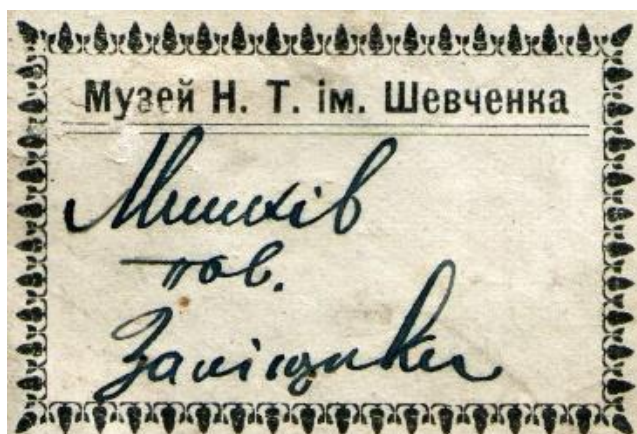 Музей Н. Т. ім. Шевченка
Мишків
пов.
Заліщики